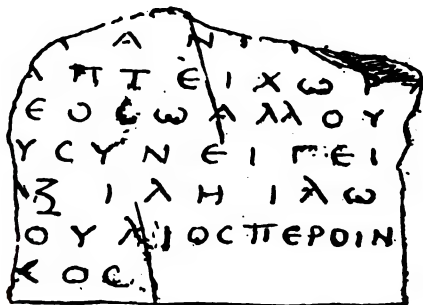 ΑΝ
ΛΠΤΕΙΧΩ
ΕΟΣΩΑΛΛΟΥ
ΥΣΥΝΕΙΓΕΙ
ΞΙΛΗΙΛΩ
ΟΥΛΙΟΣΠΕΡΟΙΝ
ΚΟΣ